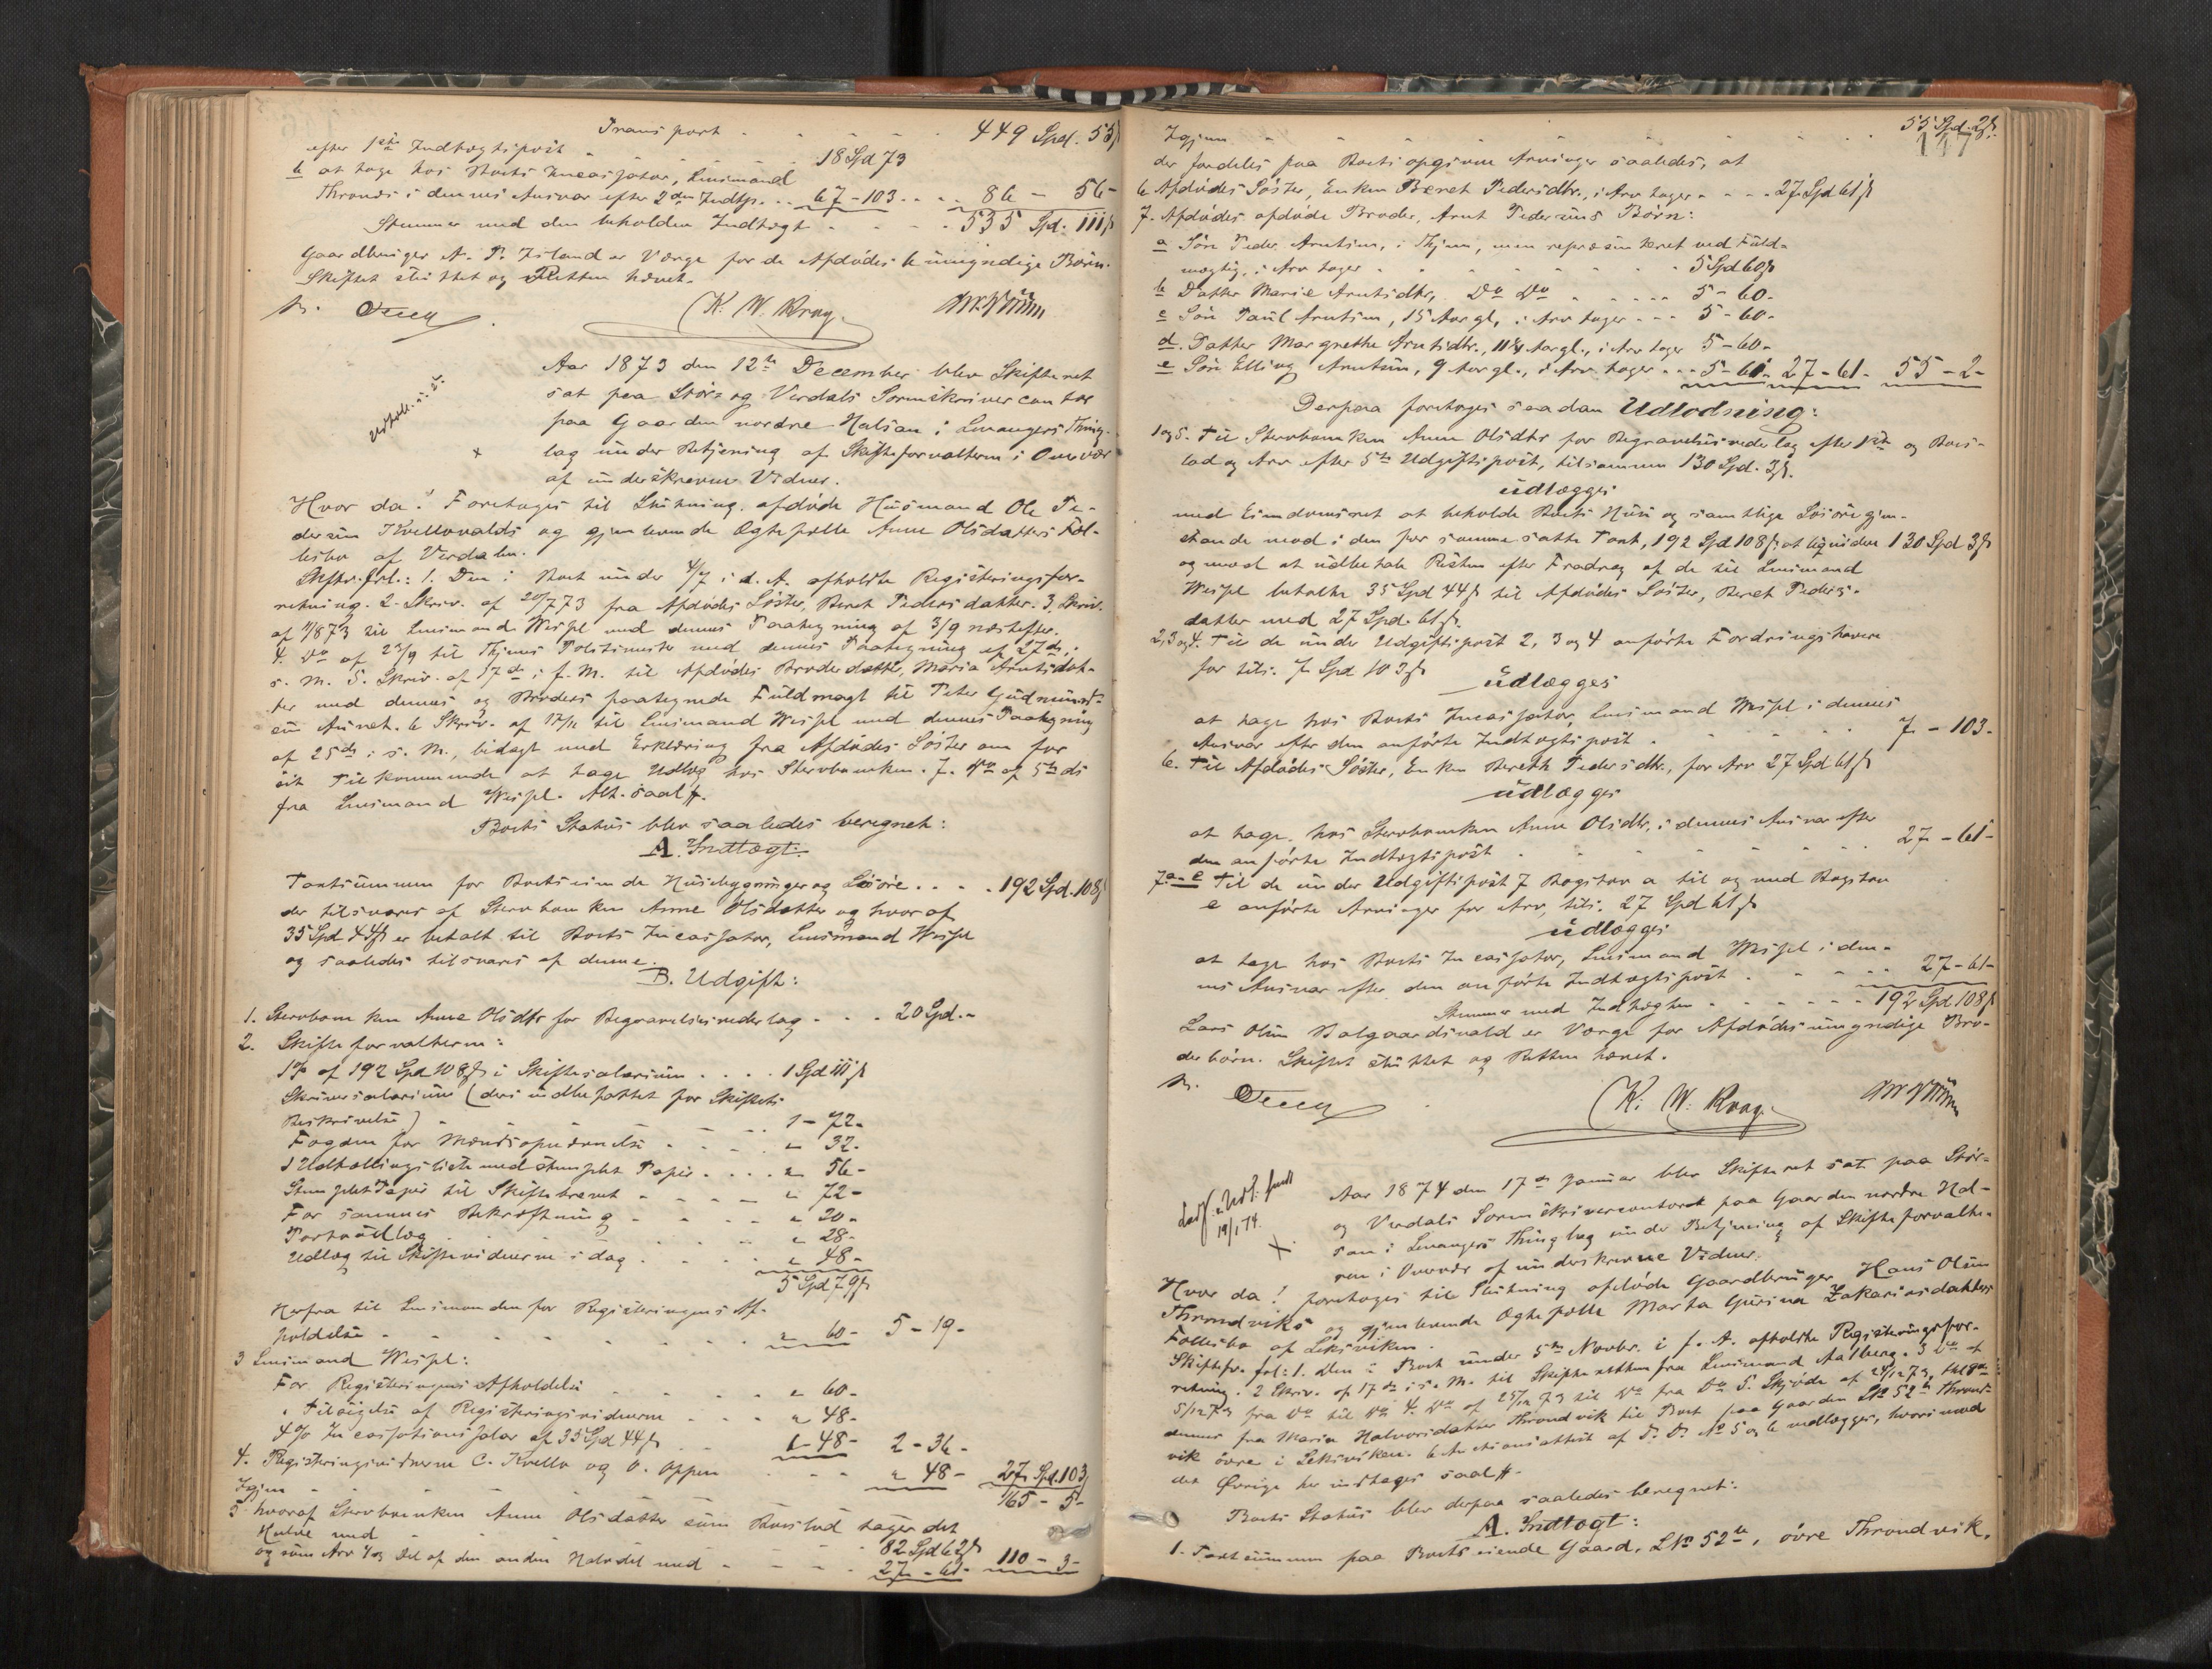 Transport . . . . . 449 Spd. 55ß
efter 1ste Indtægtspost . . . . . 18 Spd 73
b at tage hos Boets Incassator, Lensmand
Thronds i dennes Ansvar efter 2den Indtp. . . 67-103 . . . 86 - 56-
Stemmer med den beholdne Indtægt . . . . 535 Spd. 111ß
Gaardbruger A. P. Island er Værge for de Afdødes 6 umyndige Børn.
Skiftet sluttet og Retten hævet.
K. W. Krag.
Aar 1873 den 12te December blev Skifteret
sat paa Stör- og Værdals Sorenskrivercontor
paa Gaarden nordre Halsan i Levangers Thing-
lag under Betjening af Skifteforvalteren i Overvær
af underskrevne Vidner.
Hvor da! Foretoges til Slutning afdøde Husmand Ole Pe-
dersen Kvellovalds og gjenlevende Ægtefælle Anne Olsdatters Fæl-
lesbo af Værdalen.
Skiftr. frl.: 1. Den i Boet under 4/7 i d. A. afholdte Registreringsfor-
retning. 2. Skriv. af 20/7 73 fra Afdødes Søster, Beret Pedersdatter. 3. Skriv.
af 11/8 73 til Lensmand Wessel med dennes Paategning af 3/9 næstefter.
4. Do af 23/9 til Thjems Politimester med dennes Paategning af 27de i
s. M. 5. Skriv. af 17de i f. M. til Afdødes Broderdatter, Maria Arntsdat-
ter med dennes og Broders paategnede Fuldmagt til Peter Gudmund-
sen Aunet. 6 Skriv. af 17/11 til Lensmand Wessel med dennes Paategning
af 25de i s. M., bilagt med Erklæring fra Afdødes Søster om for
sit Tilkommende at tage Udlæg hos Stervboenken. 7. Do af 5te ds
fra Lensmand Wessel. Alt saal #.
Boets Status blev saaledes beregnet:
A. Indtægt:
Taxtsummen for Boets eiende Husebygninger og Løsøre . . . . 192 Spd. 108ß
der tilsvares af Stervboenken Anne Olsdatter og hvoraf
35 Spd 44ß er betalt til Boets Incassator, Lensmand Wessel
og saaledes tilsvares af denne.
B. Udgift:
1. Stervboenken Anne Olsdtr for Begravelsesvederlag - - . 20 Spd. -
2. Skifteforvalteren:
1% af 192 Spd 108ß i Skiftesalarium . . . . 1 Spd 111ß
Skriversalarium (deri indbefattet for Skiftets
Beskrivelse) - . . . 1 - 72-
Fogden for Mændsopnævnelse - . . . „ 32-
1 Udtællingsliste med stemplet Papir . . . . „ 56-
Stemplet Papir til Skiftebrevet - - - - - „ 72-
For sammes Bekræftning - - - „ 20-
Portoudlæg . . . „ 28-
Udlæg til Skiftevidnerne i dag . . . „ 48-
5 Spd 79ß
Herfra til Lensmanden for Registreringens Af-
holdelse - - - - - „ 60- 5 - 19-
3 Lensmand Wessel:
For Registreringens Afholdelse . . . „ 60-
" Tilsigelse af Registreringsvidnerne - . . . „ 48-
4% Incassationssalar af 35 Spd 44ß . . 1 - 48- 2 - 36-
4. Registreringsvidnerne C. Kvello og O. Oppem . . . „ 48- 27 Spd. 103ß
Igjen - - - 165 - 5-
5 hvoraf Stervboenken Anne Olsdatter som Boeslod tager det
Halve med - - - 82 Spd 62ß
og som Arv 1/3 Del af den anden Halvdel med - - - 27 - 61- 110 - 3-
147
Igjen - - - 55 Spd. 2ß.
der fordeles paa Boets opgivne Arvinger saaledes, at
6 Afdødes Søster, Enken Beret Pedersdtr., i Arv tager - - - - 27 Spd 61ß
7. Afdødes afdøde Broder, Arnt Pedersens Børn:
a Søn Peder Arntsen, i Thjem, men repræsenteret ved Fuld-
mægtig, i Arv tager - - - 5 Spd 60ß
b Datter Marie Arntsdtr, Do Do . . . . 5 - 60-
c Søn Paul Arntsen, 15 Aar gl., i Arv tager - - - 5 - 60-
d. Datter Margrethe Arntsdtr., 11 1/4 Aar gl., i Arv tager 5 - 60-
e Søn Elling Arntsen, 9 Aar gl., i Arv tager . . . 5 - 61- 27 - 61- 55 - 2-
Derpaa foretoges saadan Udlodning:
1 og 5. Til Stervboenken Anne Olsdtr for Begravelsesvederlag efter 1ste og Boes-
lod og Arv efter 5te Udgiftspost, tilsammen 130 Spd. 3ß.
udlægges
med Eiendomsret at beholde Boets Huse og samtlige Løsøregjen-
stande mod i den for samme satte Taxt, 192 Spd 108ß at liqvidere 130 Spd 3ß
og mod at udbetale Resten efter Fradrag af de til Lensmand
Wessel betalte 35 Spd 44ß til Afdødes Søster, Beret Peders-
datter med 27 Spd. 61ß.
2, 3 og 4. Til de under Udgiftspost 2, 3 og 4 anførte Fordringshavere
for tils. 7 Spd 103ß
udlægges
at tage hos Boets Incassator, Lensmand Wessel i dennes
Ansvar efter den anførte Indtægtspost . . . 7 - 103-
6. Til Afdødes Søster, Enken Bereth Pedersdtr., for Arv 27 Spd 61ß
udlægges
at tage hos Stervboenken Anne Olsdtr. i dennes Ansvar efter
den anførte Indtægtspost . . . 27 - 61-
7 a-e Til de under Udgiftspost 7 Bogstav a til og med Bogstav
e anførte Arvinger for Arv, tils. 27 Spd 61ß
udlægges
at tage hos Boets Incassator, Lensmand Wessel i den-
nes Ansvar efter den anførte Indtægtspost . . . 27 - 61-
Stemmer med Indtægten - . . . 192 Spd 108ß
Lars Olsen Balgaardsvald er Værge for Afdødes umyndige Bro-
derbørn. Skiftet sluttet og Retten hævet.
K. W. Krag.
19/1 74.
Aar 1874 den 17de Januar blev Skifteret sat paa Stör-
og Værdals Sorenskrivercontoret paa Gaarden nordre Hal-
san i Levangers Thinglag under Betjening af Skifteforvalte-
ren i Overvær af underskrevne Vidner.
Hvor da! foretoges til Slutning afdøde Gaardbruger Hans Olsen
Throndviks og gjenlevende Ægtefælle Marta Gurina Zakariasdatters
Fællesbo af Leksviken.
Skiftefr. frl: 1. Den i Boet under 5te Novbr. i f. A. afholdte Registreringsfor-
retning. 2 Skriv. af 17de i s. M. til Skifteretten fra Lensmand Aalberg. 3 Do af
5/12 73 fra Do til Do 4. Do af 25/12 73 til Do fra Do 5. Skjøde af 24/12 73,
dennes fra Maria Halvorsdatter Throndvik til Boet paa Gaarden LNo 52b Thrond-
vik övre i Leksviken. 6 Auctionsattest af D. D. No 5 og 6 vedlægges, hvorimod
det Øvrige her indtages saal #.
Boets Status blev derpaa saaledes beregnet:
A. Indtægt:
1. Taxtsummen paa Boets eiende Gaard, LNo 52b, övre Throndvik,